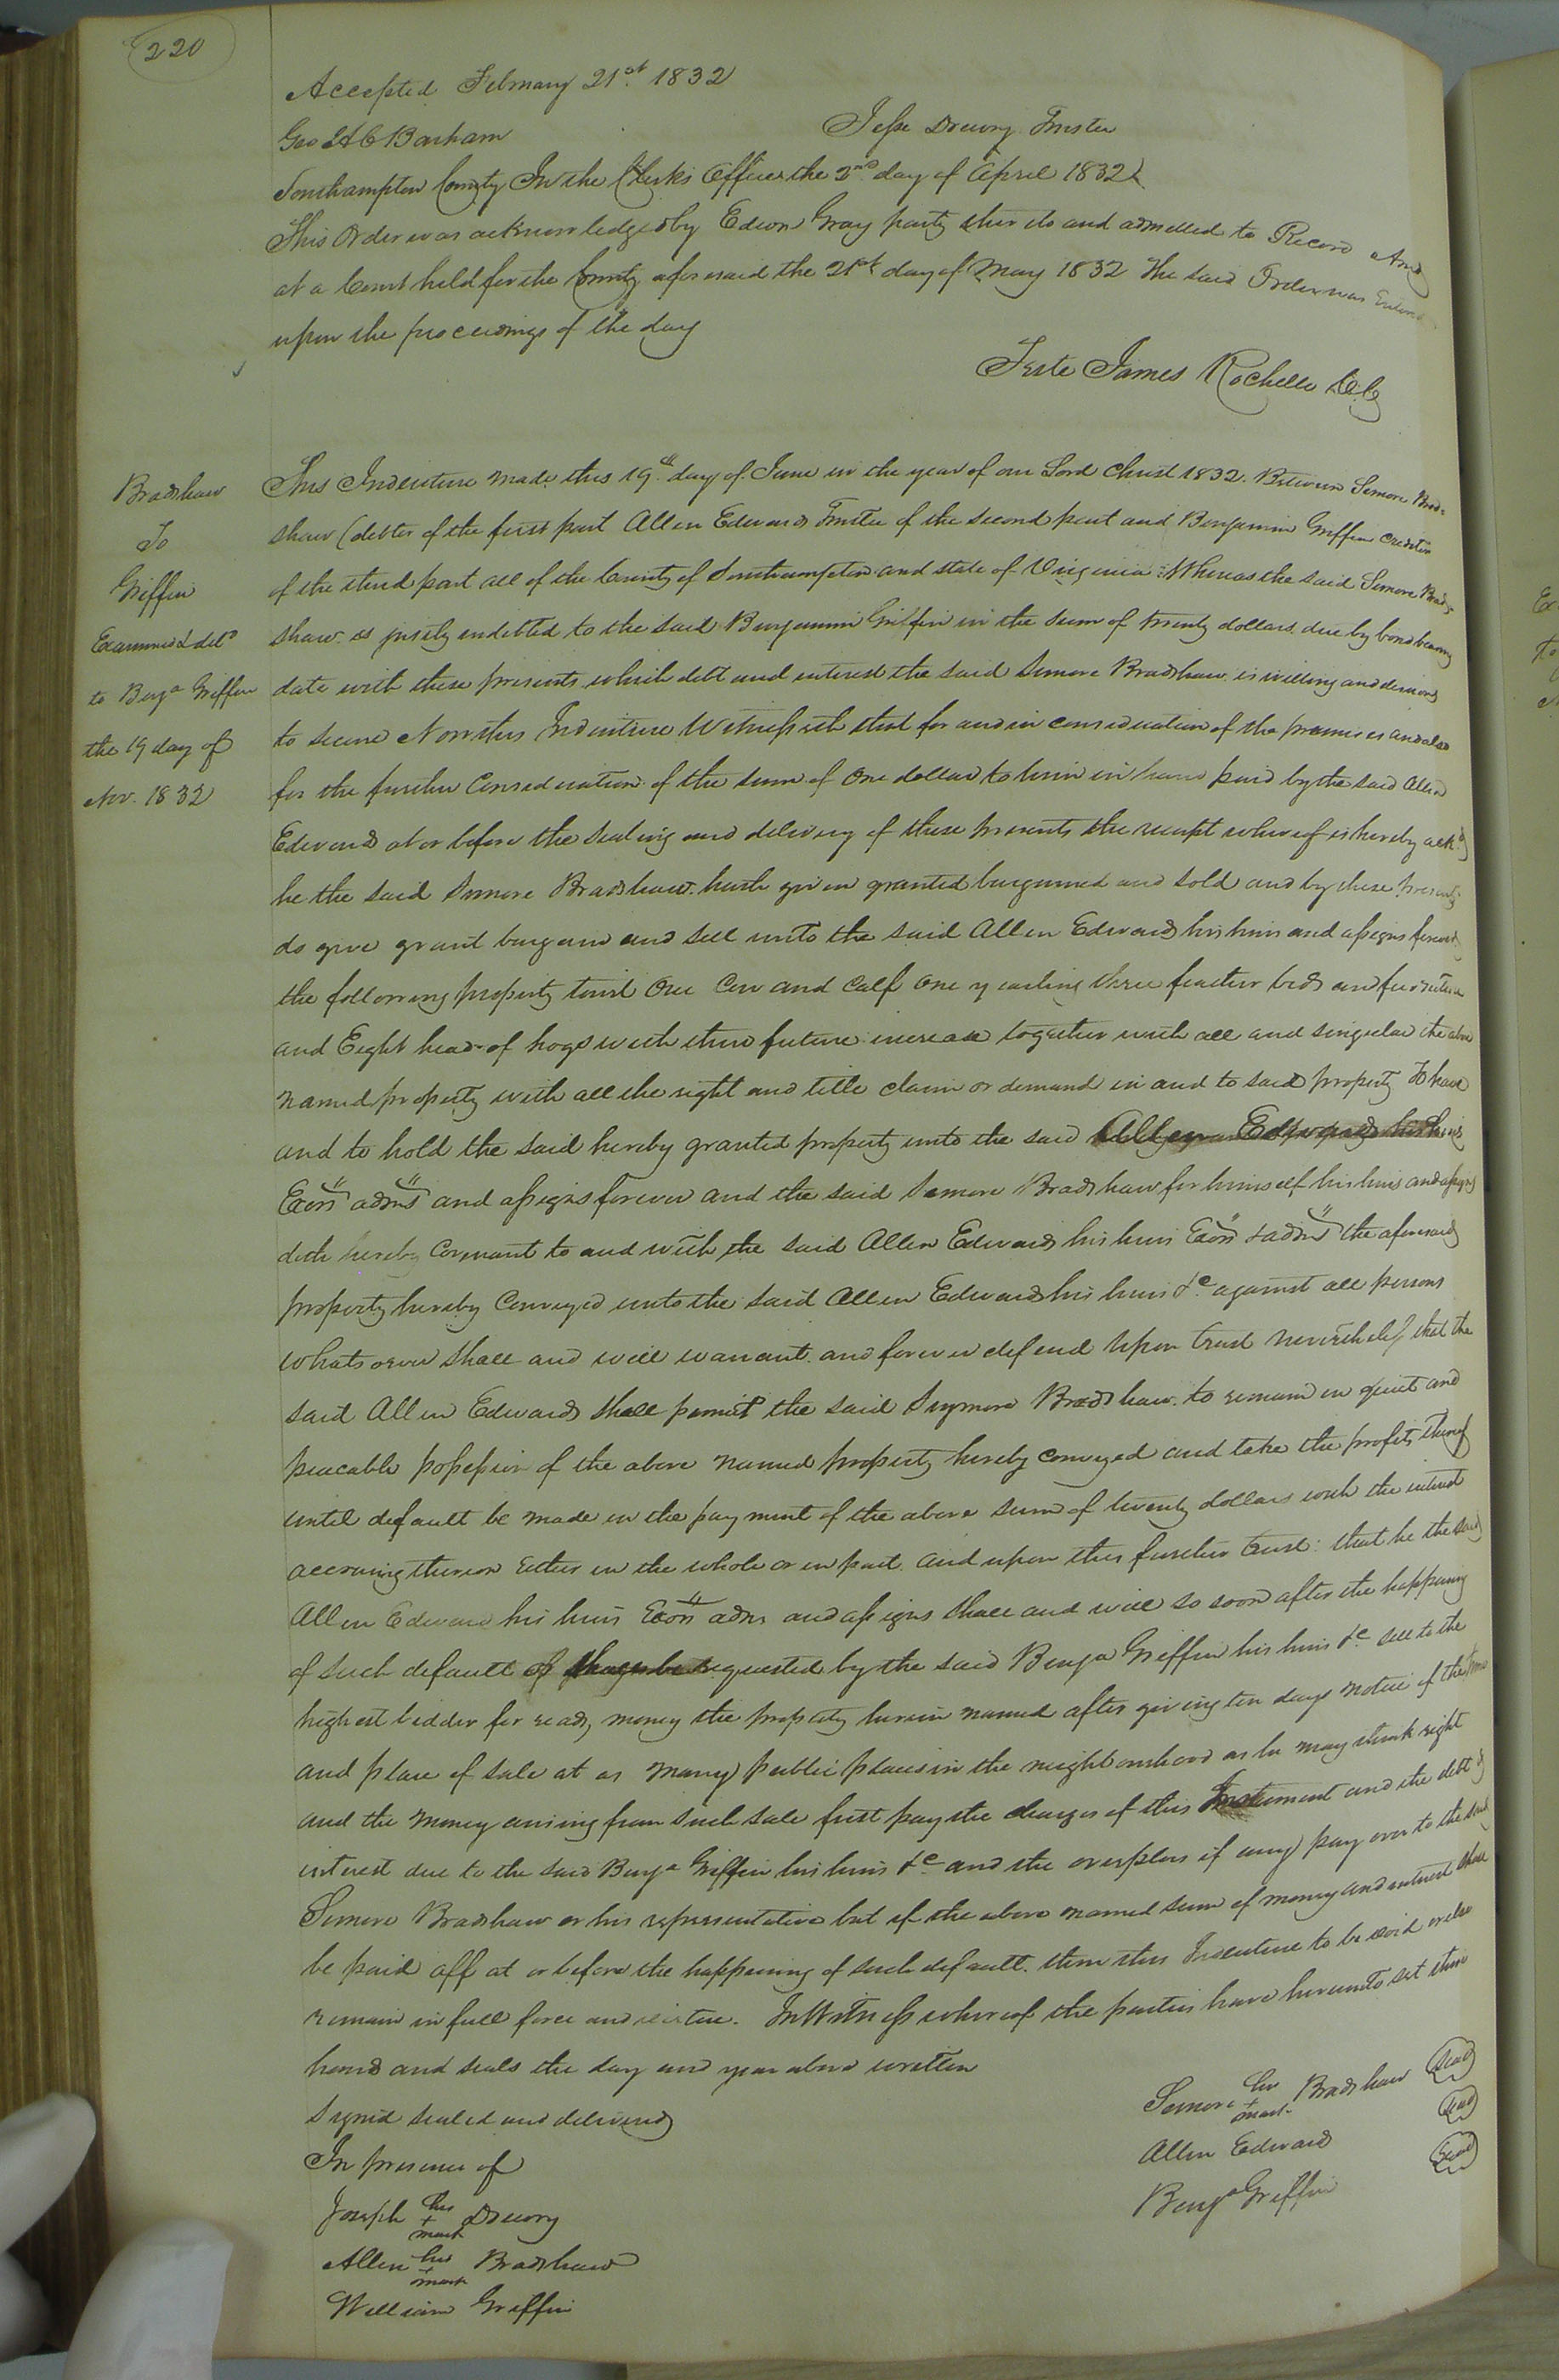 220
Accepted February 21st 1832
Jesse Drewry Trustee
Geo H C Barham
Southampton County In the Clerks Office the 2nd day of April 1832
This Order was acknowledged by Edwin Gray party thereto and admitted to Record And
at a Court held for the County aforesaid the 21st day of May 1832 The said Order was Entered
upon the proceedings of the day
Teste James Rochelle Cl. C
Bradshaw
To
Griffin
Examined & deld
to Benja Griffin
the 19 day of
Nov. 1832
This Indenture made this 19th day of June in the year of our Lord Christ 1832. Between Semore Brad=
shaw (debter of the first part Allen Edwards Trustee of the second part and Benjamin Griffin creditor
of the third part all of the County of Southampton and state of Virginia: Whereas the said Semore Brad=
shaw is justly indebted to the said Benjamin Griffin in the sum of twenty dollars due by bond bearing
date with these presents which debt and interest the said Semore Bradshaw is willing and desirous
to secure Now this Indenture Witnesseth that for and in consideration of the premises and also
for the further Consideration of the sum of One dollar to him in hand paid by the said Allen
Edwards at or before the sealing and delivery of these presents the receipt whereof is hereby ackd
he the said Semore Bradshaw hath given granted bargained and sold and by these presents
do give grant bargain and sell unto the said Allen Edwards his heirs and assigns forever
the following property towit One Cow and Calf One yearling three feather beds and furniture
and Eight head of hogs with their future increase together with all and singular the above
named property with all the right and title claim or demand in and to said property To have
and to hold the said hereby granted property unto the said Allen Edwards his heirs
Exors admrs and assigns forever and the said Semore Bradshaw for himself his heirs and assigns
doth hereby Covenant to and with the said Allen Edwards his heirs Exors & admrs the aforesaid
property hereby Conveyed unto the said Allen Edwards his heirs &c against all persons
whatsoever shall and will warrant and forever defend Upon trust nevertheless that the
said Allen Edwards shall permit the said Seymore Bradshaw to remain in quiet and
peacable possession of the above named property hereby conveyed and take the profits thereof
until default be made in the payment of the above sum of twenty dollars with the interest
accruing thereon either in the whole or in part. and upon this further trust: that he the said
Allen Edwards his heirs Exors admrs and assigns shall and will so soon after the happening
of such default if requested by the said Benja Griffin his heirs &c sell to the
highest bidder for ready money the property herein named after giving ten days notice of the time
and place of sale at as many public places in the neighbourhood as he may think right
and the money arising from such sale first pay the charges of this Instrument and the debt &
interest due to the said Benja Griffin his heirs &c and the overplus if any pay over to the said
Semore Bradshaw or his representative but if the above named sum of money and interest shall
be paid off at or before the happening of such default. then this Indenture to be void or else
remain in full force and virtue. In Witness whereof the parties have hereunto set their
hands and seals the day and year above written
Signed sealed and delivered
In presence of
Semore his + mark Bradshaw (seal)
Allen Edwards (seal)
Benja Griffin (seal)
Joseph his + mark Drewry
Allen his + mark Bradshaw
William Griffin